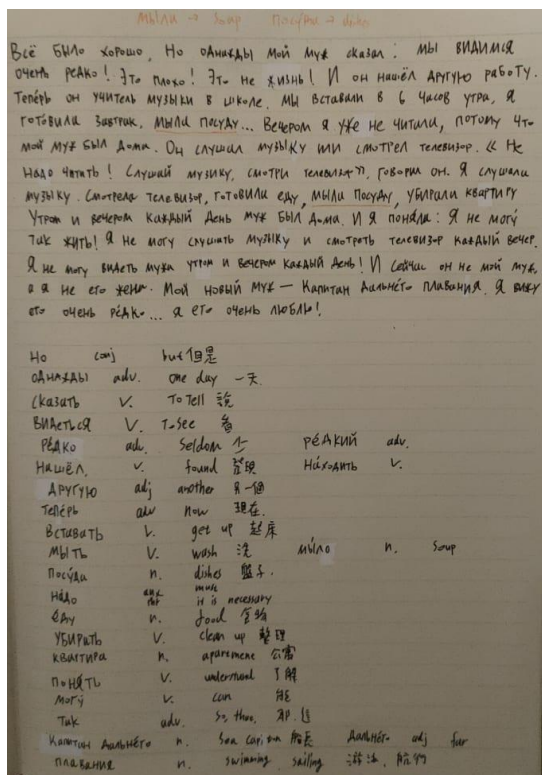 мыли → soup посуды → dishes
Всё было хорошо, Но однажды мой муж сказал: мы видимся
очень редко! Это плохо! Это не жизнь! И он нашёл другую работу.
Теперь он учитель музыки в школе. Мы вставали в 6 часов утра, я
готовила завтрак, мыли посуду... Вечером я уже не читали, потому что
мой муж был дома. Он слушал музыку или смотрел телевизор. « Не
надо читать! Слушай музику, смотри телевизор», говорил он. Я слушала
музыку. Смотрела телевизор, готовили еду, мыли посуду, убирали квартиру
Утром и вечером каждый день муж был дома. И Я поняла: Я не могу
так жить! Я не могу слушать музыку и смотреть телевизор каждый вечер.
Я не могу видеть мужа утром и вечером каждый день! И сейчас он не мой муж,
а я не его жена. Мой новый муж — капитан дальнего плавания. Я вижу
его очень редко... Я его очень люблю!
Но conj but 但是
однажды adv. one day 一天
сказать v. To tell 說
видеться v. To see 看
рéдко adv. seldom 少 рéдкий adv.
нашёл, v. found 發現 нáходить v.
другую adj another 另一個
теперь adv now 現在.
вставать v. get up 起床
мыть v. wash 洗 мы́ло n. soup
посýда n. dishes 盤子.
нáдо must it is necessary
еду n. food 食物
убирать v. clean up 整理
квартира n. apartment 公寓
понять v. understand 了解
могу v. can 能
так adv. so, thus,
капитан дальнéго n. sea captain 船長 дальнéго adj far
плавания n. swimming, sailing 游泳, 航行